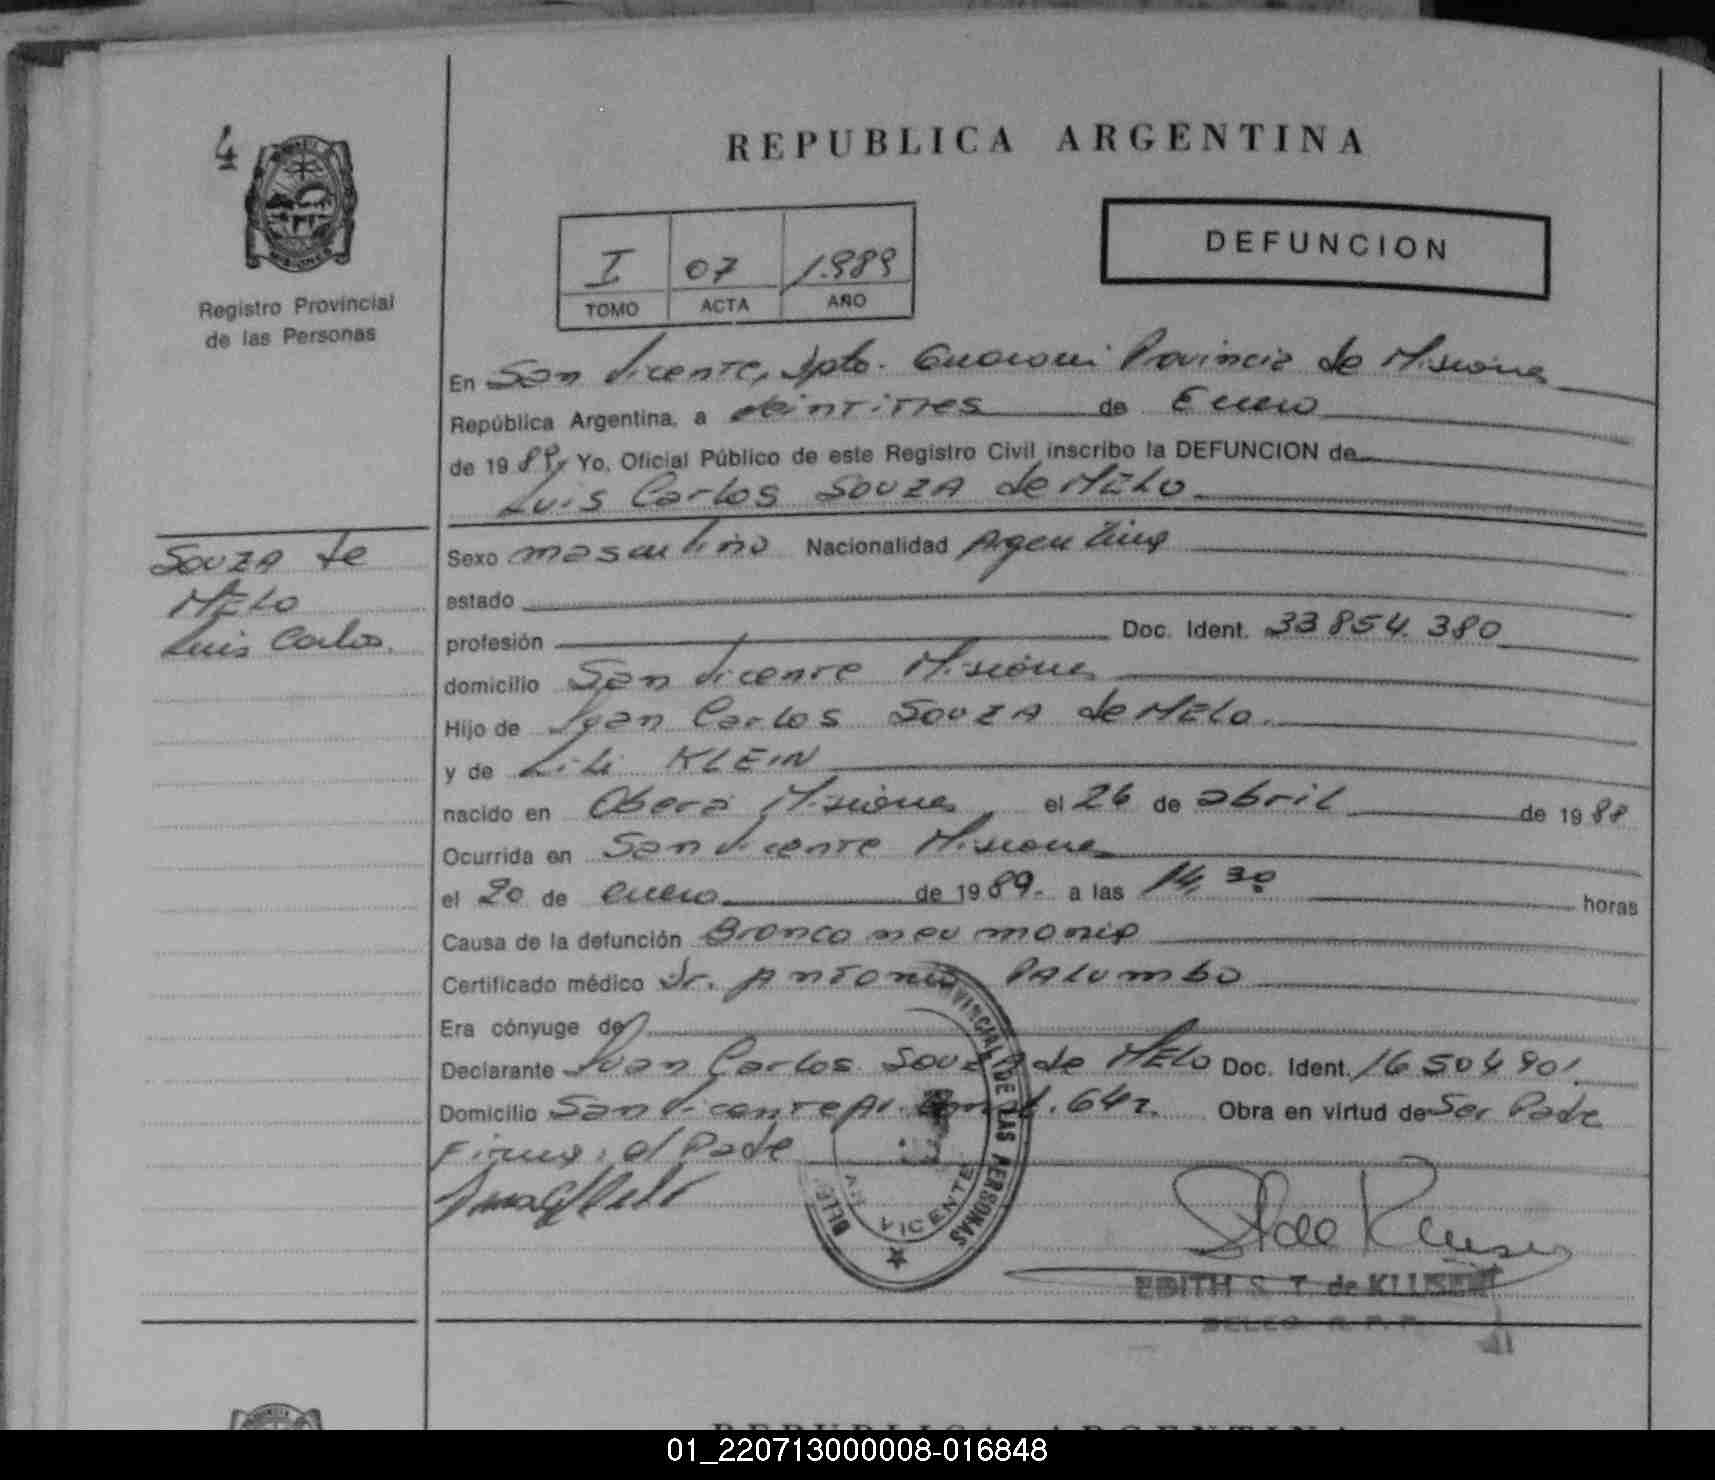 4
REPUBLICA ARGENTINA
DEFUNCION
I 07 1.989
TOMO ACTA AÑO
Registro Provincial
de las Personas
En San Vicente, Dpto. Guarani Provincia de Misiones
República Argentina, a veintitres de Enero
de 1989, Yo, Oficial Público de este Registro Civil inscribo la DEFUNCION de
Luis Carlos SOUZA de MELO
SOUZA de
MELO
Luis Carlos.
Sexo masculino Nacionalidad Argentina
estado
profesión Doc. Ident. 33 854. 380
domicilio San Vicente Misiones
Hijo de Juan Carlos SOUZA de MELO.
y de Lili KLEIN
nacido en Obera Misiones el 26 de abril de 1988
Ocurrida en San Vicente Misiones
el 20 de enero de 1989.- a las 14,30 horas
Causa de la defunción Bronconeumonia
Certificado médico Dr. Antonio PALUMBO
Era cónyuge de
Declarante Juan Carlos SOUZA de MELO Doc. Ident. 16 504 901.
Domicilio San Vicente Obra en virtud de Ser Padre
Firma: el Padre
VINCIAL DE LAS PERSONAS
VICENTE
EDITH S. T. de KLUSENER
REPUBLICA ARGENTINA
01_220713000008-016848